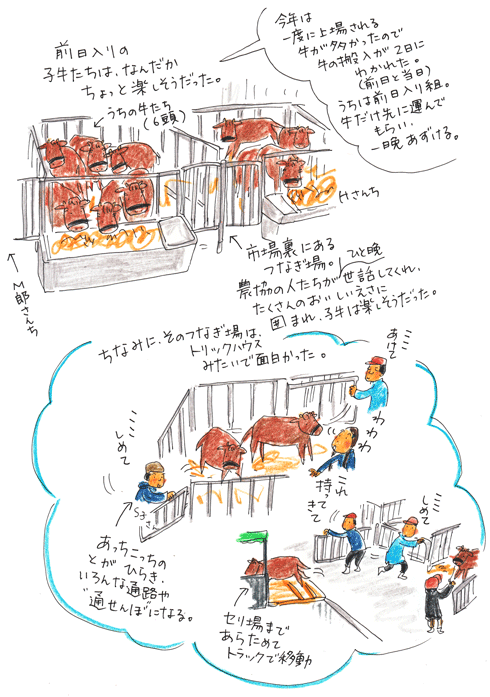 今年は
一度に上場される
牛が多かったので
牛の搬入が2日に
わかれた。
(前日と当日)
うちは前日入り組。
牛だけ先に運んで
もらい、
一晩あずける。
前日入りの
子牛たちは、なんだか
ちょっと楽しそうだった。
うちの牛たち
(6頭)
Hさんち
M郎さんち
市場裏にある
つなぎ場。
農協の人たちがひと晩世話してくれ、
たくさんのおいしいえさに
囲まれ、子牛は楽しそうだった。
ちなみに、そのつなぎ場は、
トリックハウス
みたいで面白かった。
あけて
わわわ
ここ
しめて
Sまさ
これ
持ってきて
ここ
しめて
あっちこっちの
とがひらき、
いろんな通路や
"通せんぼ"になる。
セリ場まで
あらためて
トラックで移動